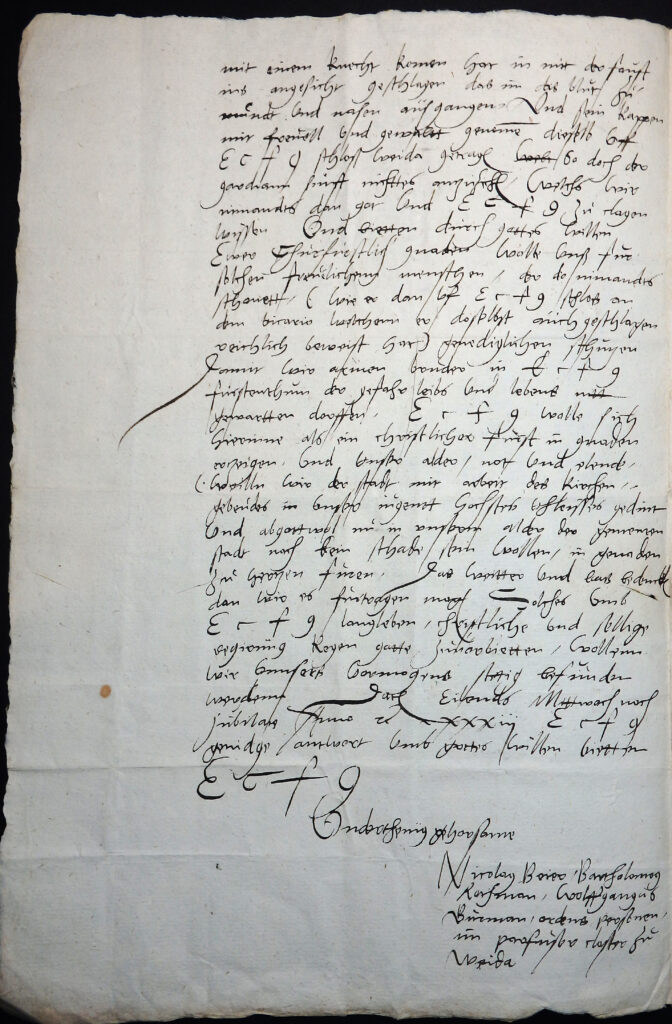 mit einem knecht komen hat in mit der faust
ins angesicht geschlagen das im das blut zu
mundt und nasen ausgangen und sein kappen
mit frevell und gewaltt genome dieselb uff
E c f g schloss weida getragen so doch der
gardiann sunst nichttes welchs wir
nimandts dan got und E c f g zu clagen
wissen und bietten durch gottes willen
Ewer Churfurstlich gnaden wolle uns fur
solchem frevlichem menschen, der do nimandts
schonett, (wie er dan uf E c f g schlos an
dem vicario welchenn er doselbst auch geschlagen
reichlich beweist hat) genediglichen schutzen
damit wir armen bruder in E c f g
furstenthum der gefahr leibs und lebens nitt
gewartten dorffen, E c f g wolle sich
hierinne als ein christlicher furst in gnaden
erzeigen, und unser alder, not und elende
(wolln wir der stadt mit arbeit des kirchen
gebeudes in unser iugent hochstes vleisses gedint
und abgott wol nu in unserm alder der gemeinen
stadt noch kein schade sein wollen, in gnaden
zu hertzen furen, das weitter und bas bedenck
dan wir es furtragen mogen Solches umb
E c f g langleben, christliche und sellige
regirung kegen gotte zuvorbietten, wollenn
wir unnsers vormogens stetig befunden
werdenn Dat Eilends Mittwoch noch
Jubilate Anno rc xxxiii E c f g
genedige antwort umb gottes willen bietten
E c f g
Underthenig gehorsame
Nicolaus Beier, Bartholomeus
Kochman, Wolffgangus
Burman, ordens personen,
im parfusser closter zu
Weida